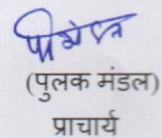 (पुलक मंडल)
प्राचार्य